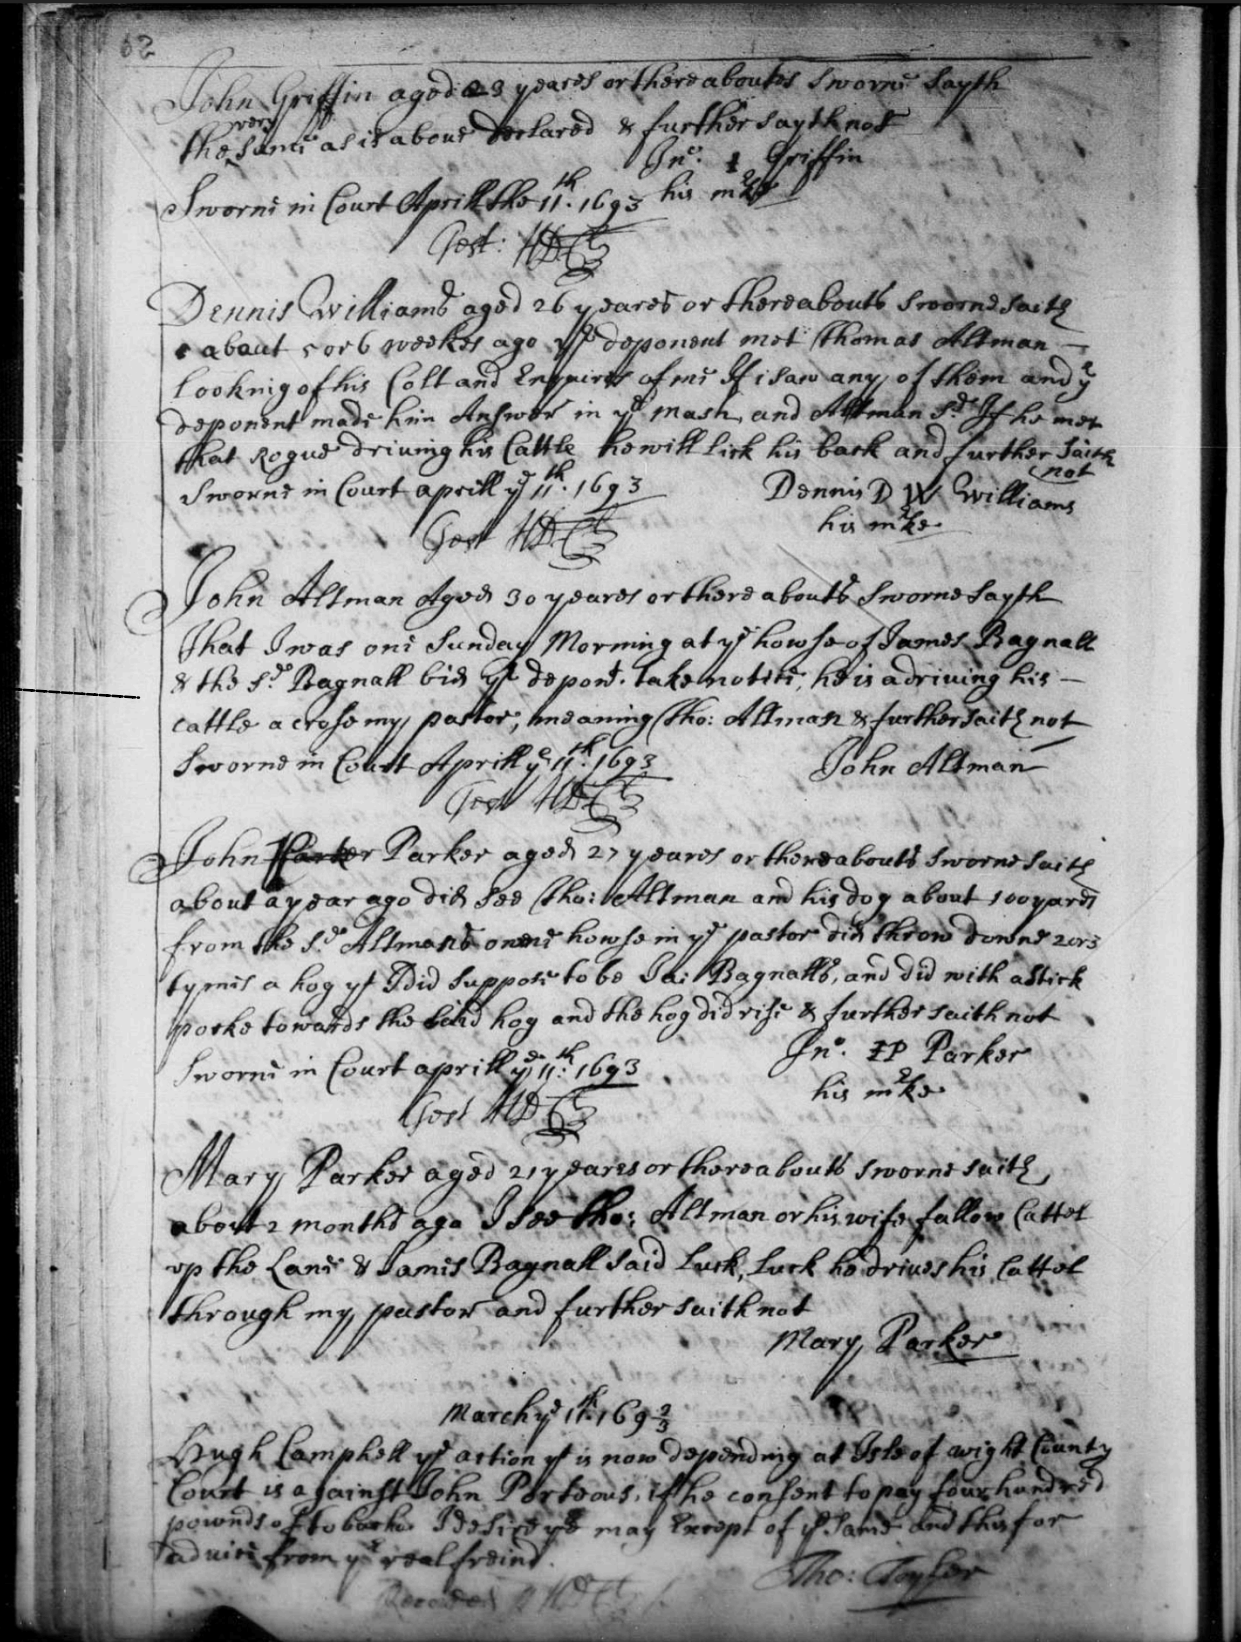 62
John Griffin aged 23 yeares or thereaboutes Sworne Sayth
very
the Same as is aboue declared & further sayth not
Jno: I Griffin
Sworne in Court Aprill the 11th. 1693 his mrke
Test: HD Cl
Dennis Williams aged 26 yeares or thereabouts sworne saith
about 5 or 6 weekes ago ye deponent met Thomas Altman
Looknig of his Colt and Enquires of me If i saw any of them and ye
deponent made him Answer in ye mash, and Altman sd If he met
that Rogue driuing his Cattle he will lick his back and further saith
not
Sworne in Court aprill ye 11th. 1693 Dennis D W Williams
his mrke
Test HD Cl
John Altman Aged 30 yeares or thereabouts Sworne Sayth
That I was one Sunday Morning at ye howse of James Bagnall
& the sd Bagnall bid ye depont. take notice, he is a driuing his
cattle a crose my pastor, meaning Tho: Altman & further saith not
Sworne in Court Aprill ye 11th. 1693 John Altman
Test HD Cl
John Parker Parker aged 27 yeares or thereabouts sworne saith
about a year ago did see Tho: Altman and his dog about 100 yards
from the sd Altmans owne howse in ye pastor did throw downe 2 or 3
tymes a hog yt I did suppose to be Ja: Bagnalls, and did with a stick
poske towards the said hog and the hog did rise & further saith not
Jno. IP Parker
Sworne in Court aprill ye 11th: 1693
his mrke
Test HD Cl
Mary Parker aged 21 yeares or thereabouts sworne saith
about 2 months ago I see Tho: Altman or his wife follow Cattel
vp the Lane & James Bagnall said Luck, Luck he driues his Cattel
through my pastor and further saith not
Mary Parker
March ye 11th. 169 2/3
Hugh Campbell ye action yt is now depending at Isle of wight County
Court is against John Porteous, if he consent to pay four hundred
pownds of tobacko I desire ye may Except of ye same and this for
aduice from yr real freind.
Tho: Tayler
Recorded HD Cl